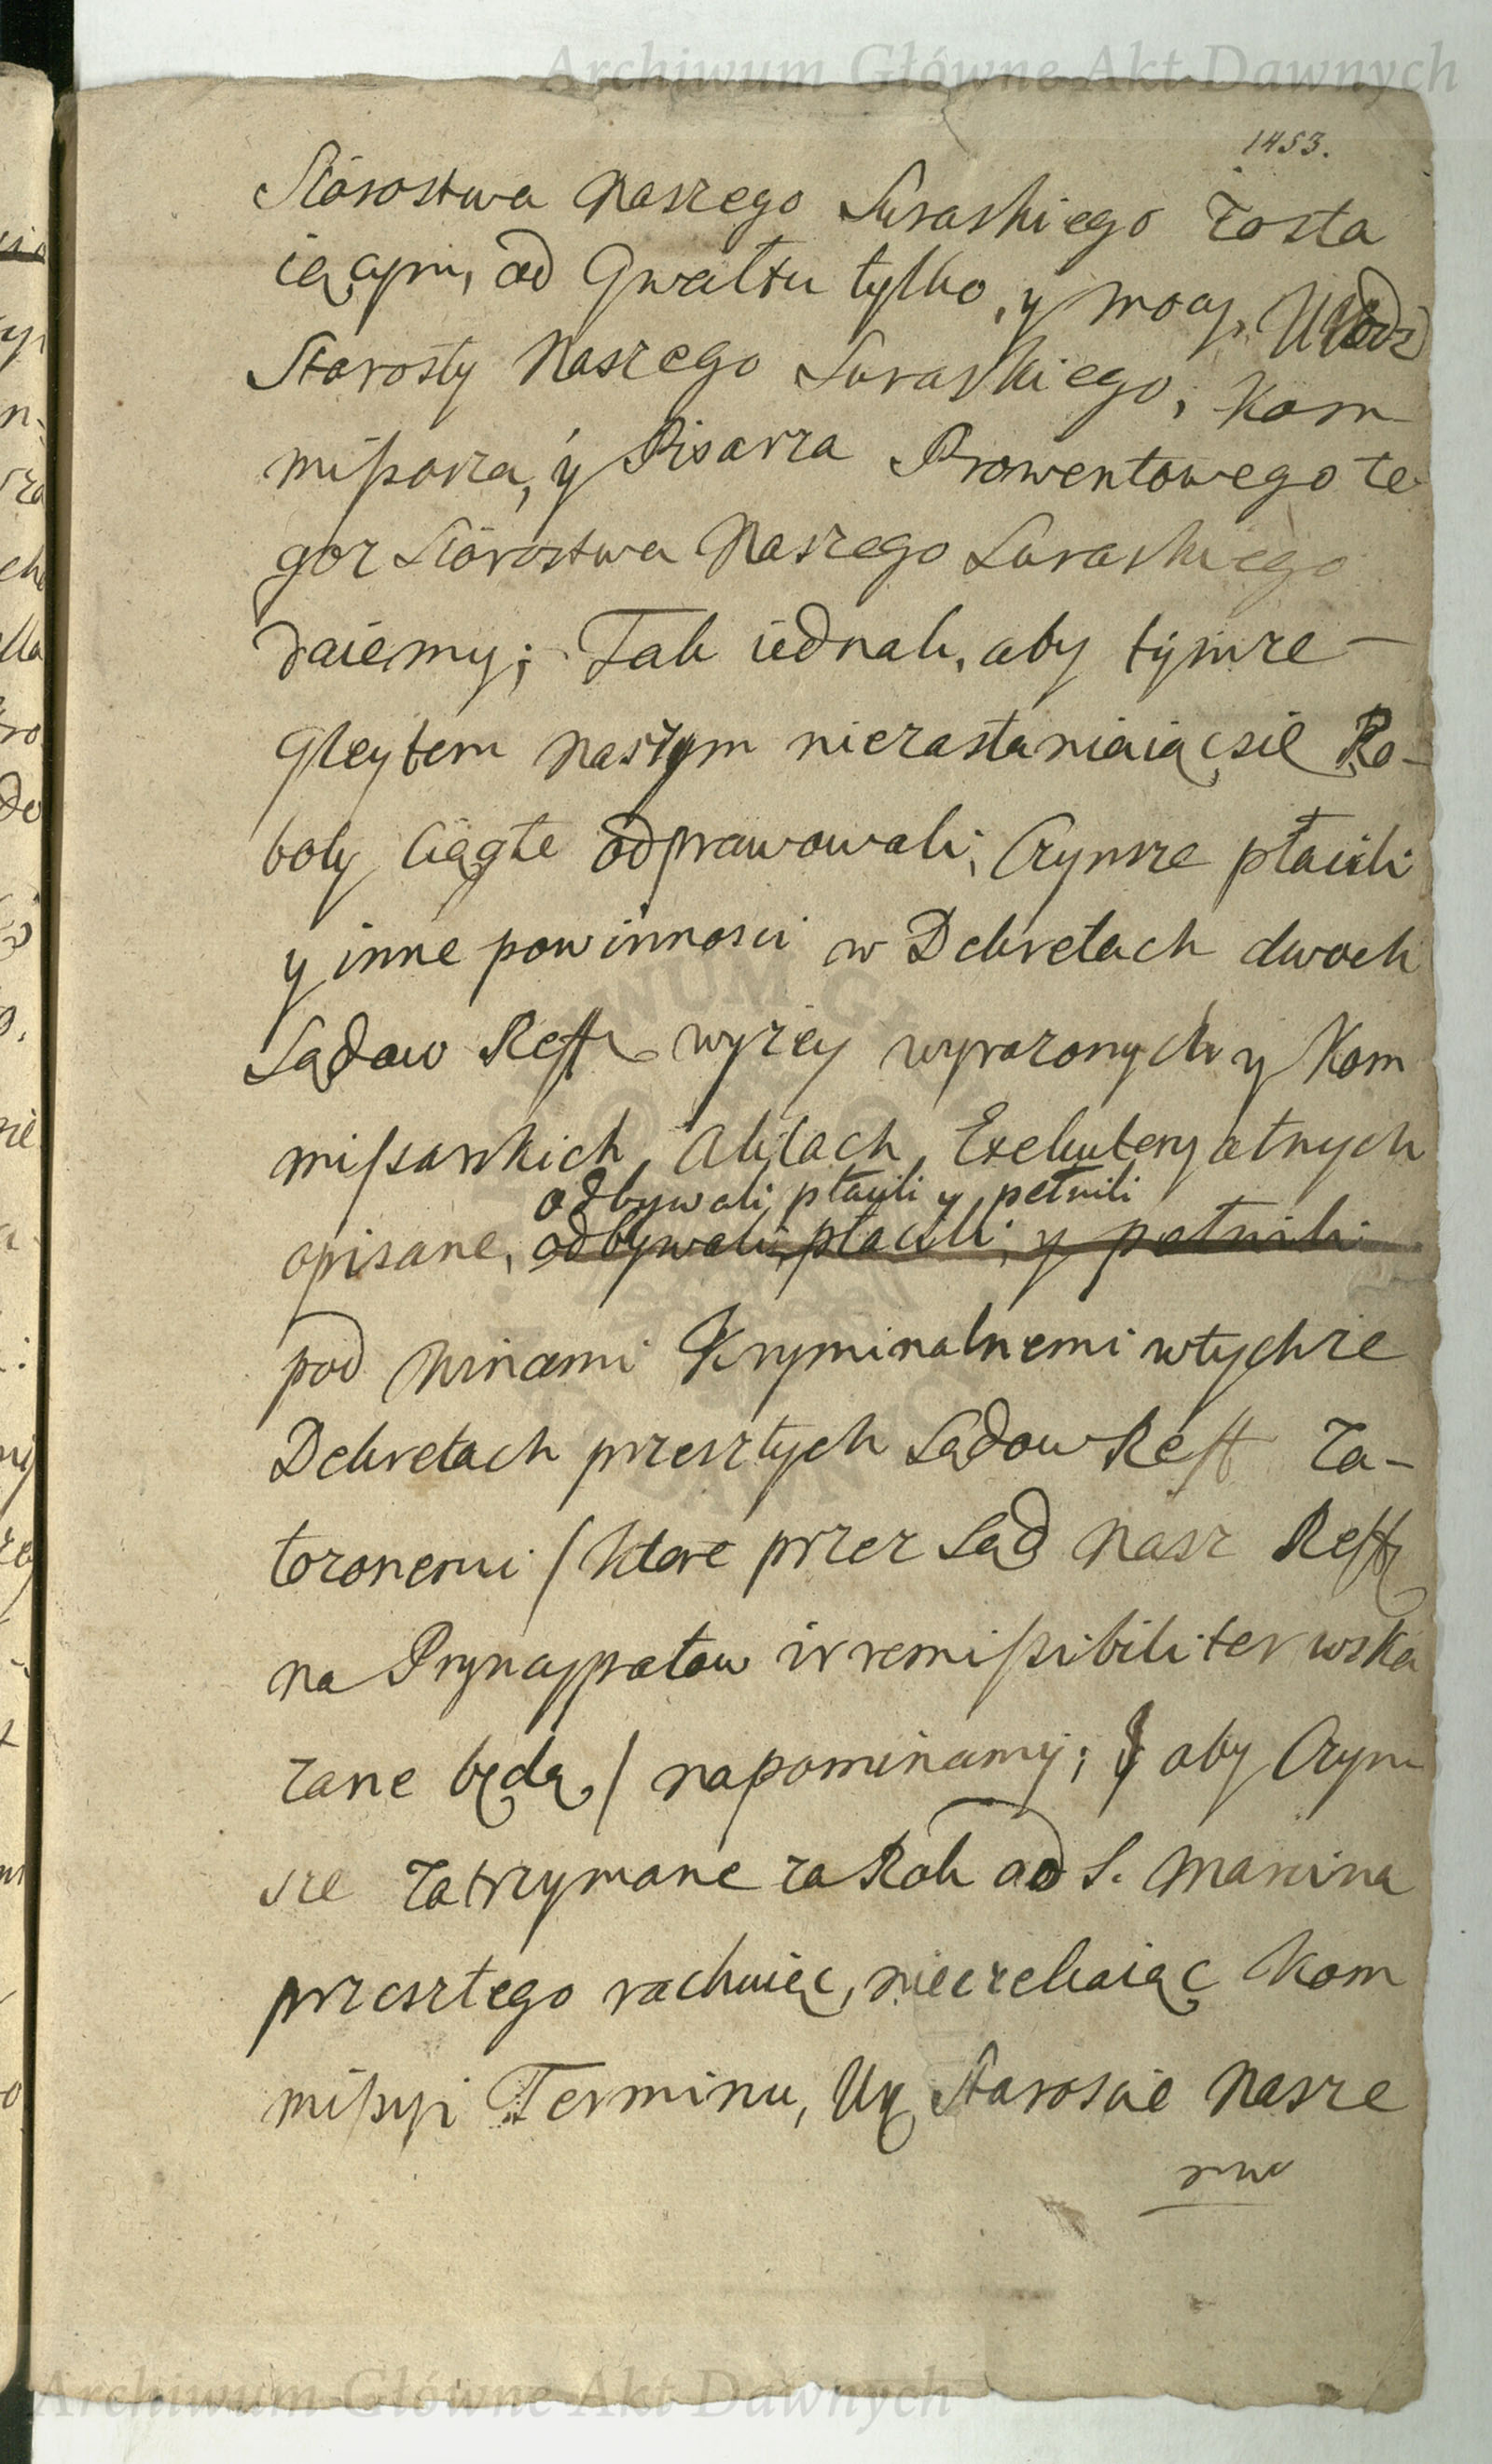 Archiwum Główne Akt Dawnych
1453.
Starostwa Naszego Suraskiego zosta
iącym, od Gwałtu tylko, y mocy,
Starosty Naszego Suraskiego, Kom
mißarza, y Pisarza Prowentowego te
goz Starostwa Naszego Suraskiego
daiemy; Tak iednak, aby tymze
Gleytem naszym niezasłaniaiąc się Ro-
boty ciągłe odprawowali, Czynsze płacili
y inne powinnosci w Dekretach dwoch
Sądow Reff wyzey wyrazonych y Kom
mißarskich Aktach, Exekutoryalnych
odbywali, płacili y pełnili
opisane, odbywali, płacili, y pełnili
pod winami Kryminalnemi wtychze
Dekretach przeszłych Sądow Reff za-
łozonemi / ktore przez Sąd Nasz Reff
na Pryncypałow irremißibiliter wska
zane będą / napominamy; y aby Czyn
sze zatrzymane za Rok od S. Marcina
przeszłego rachuiąc, nieczekaiąc Kom
mißyi Terminu, Ur Staroscie Nasze
mu
Archiwum Główne Akt Dawnych